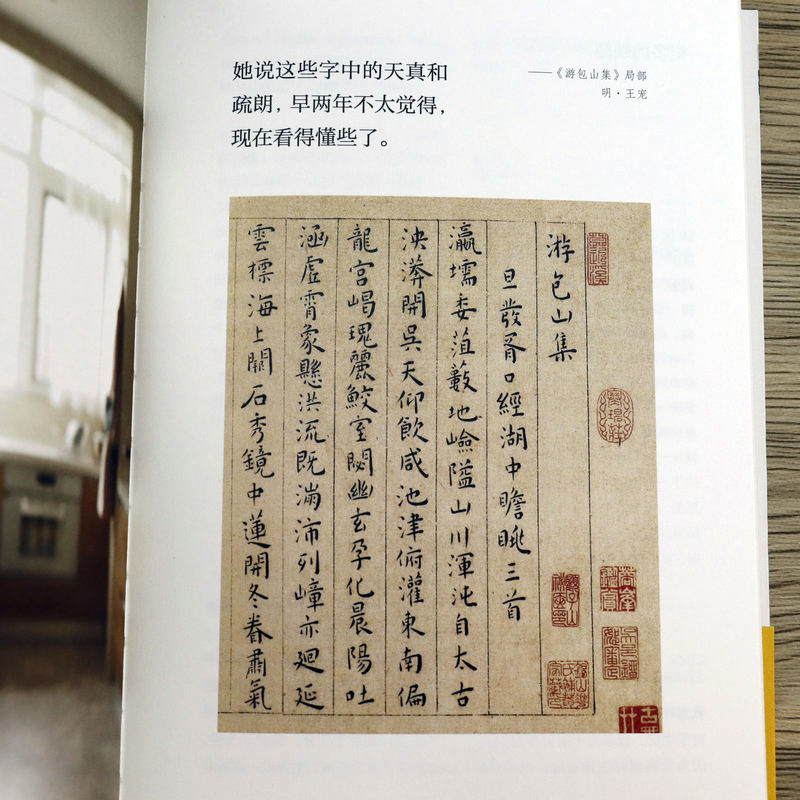 她说这些字中的天真和
疏朗，早两年不太觉得，
现在看得懂些了。
——《游包山集》局部
明·王宠
游包山集
旦發胥口經湖中瞻眺三首
瀛壖委菹藪地嶮隘山川渾沌自太古
泱漭開吳天仰飲咸池津俯灌東南偏
龍宮嵑瑰麗鮫室閟幽玄孕化晨陽吐
涵虛霄象懸洪流既滿沛列嶂亦廻延
雲標海上關石秀鏡中蓮開冬眷肅氣